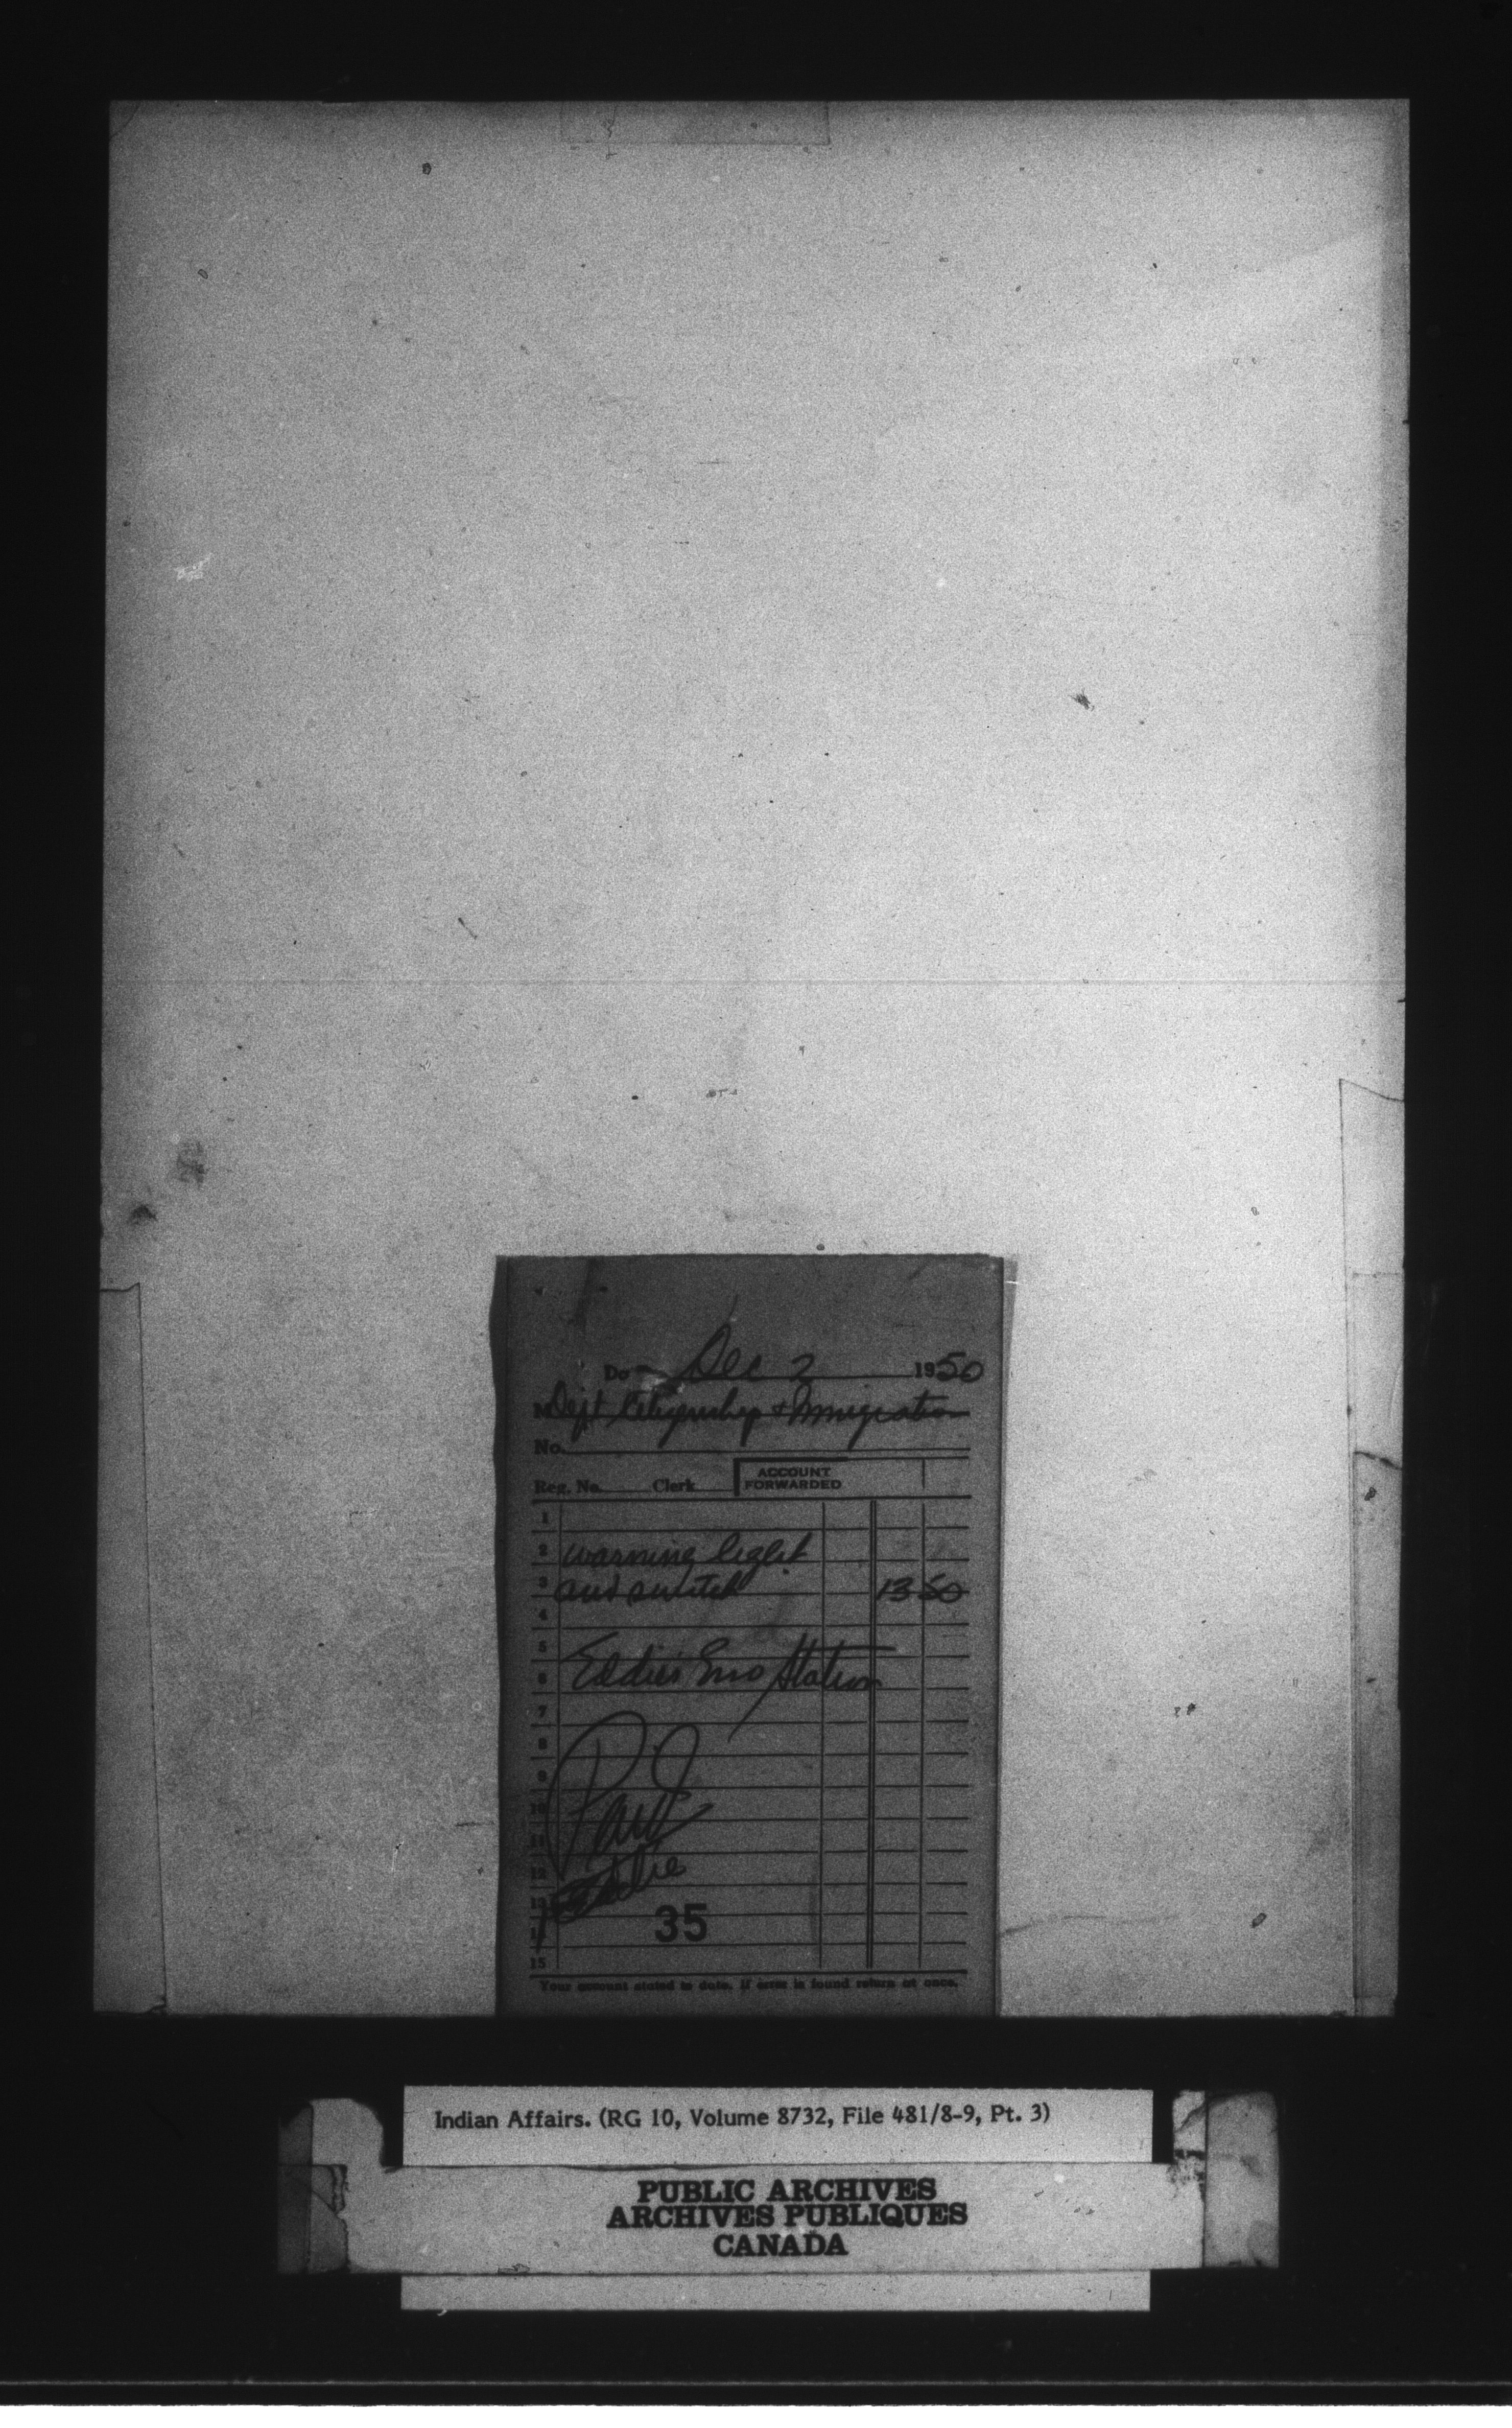 Dec 2 1950
M Dept Citizenship & Immigration
No.
Reg. No. Clerk ACCOUNT FORWARDED
1
2 warning light
3 and switch 13 50
4
5
6 Eddie's Station
7
8
9
10 Paid
11
12
13
14 35
15
Your account stated to date. If error is found return at once.
Indian Affairs. (RG 10, Volume 8732, File 481/8-9, Pt. 3)
PUBLIC ARCHIVES
ARCHIVES PUBLIQUES
CANADA